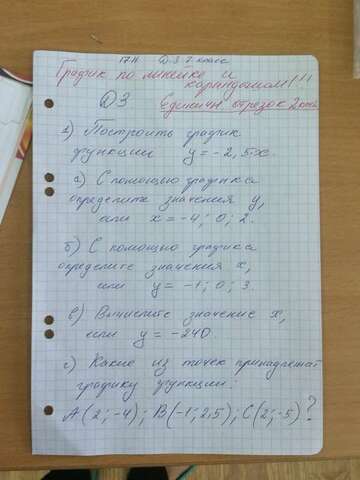 17.11 Д.З 7 класс
График по линейке и
карандашом!!!
ДЗ
Единичн отрезок 2кл
1) Построить график
функции y = -2,5x.
а) С помощью графика
определите значения y,
если x = -4; 0; 2.
б) С помощью графика
определите значения x,
если y = -1; 0; 3.
в) Вычислите значение x,
если y = -240
г) Какие из точек принадлежат
графику функции:
A(2; -4); B(-1; 2,5); C(2; -5)?